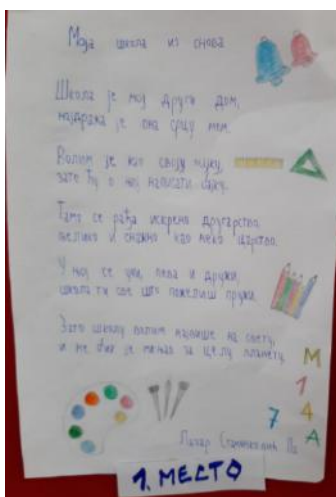 Моја школа из снова
Школа је мој други дом,
најдража је она срцу мом.
Волим је као своју куку,
зате ћу о њој написати бајку.
Тамо се рађа искрено другарство,
велико и снажно као неко царство.
У њој се учи, пева и дружи,
школа ти све што пожелиш пружи.
Зато школу волим највише на свету,
и не бих је мењао за целу планету.
М
1
7 4
А
Лазар
1. МЕСТО